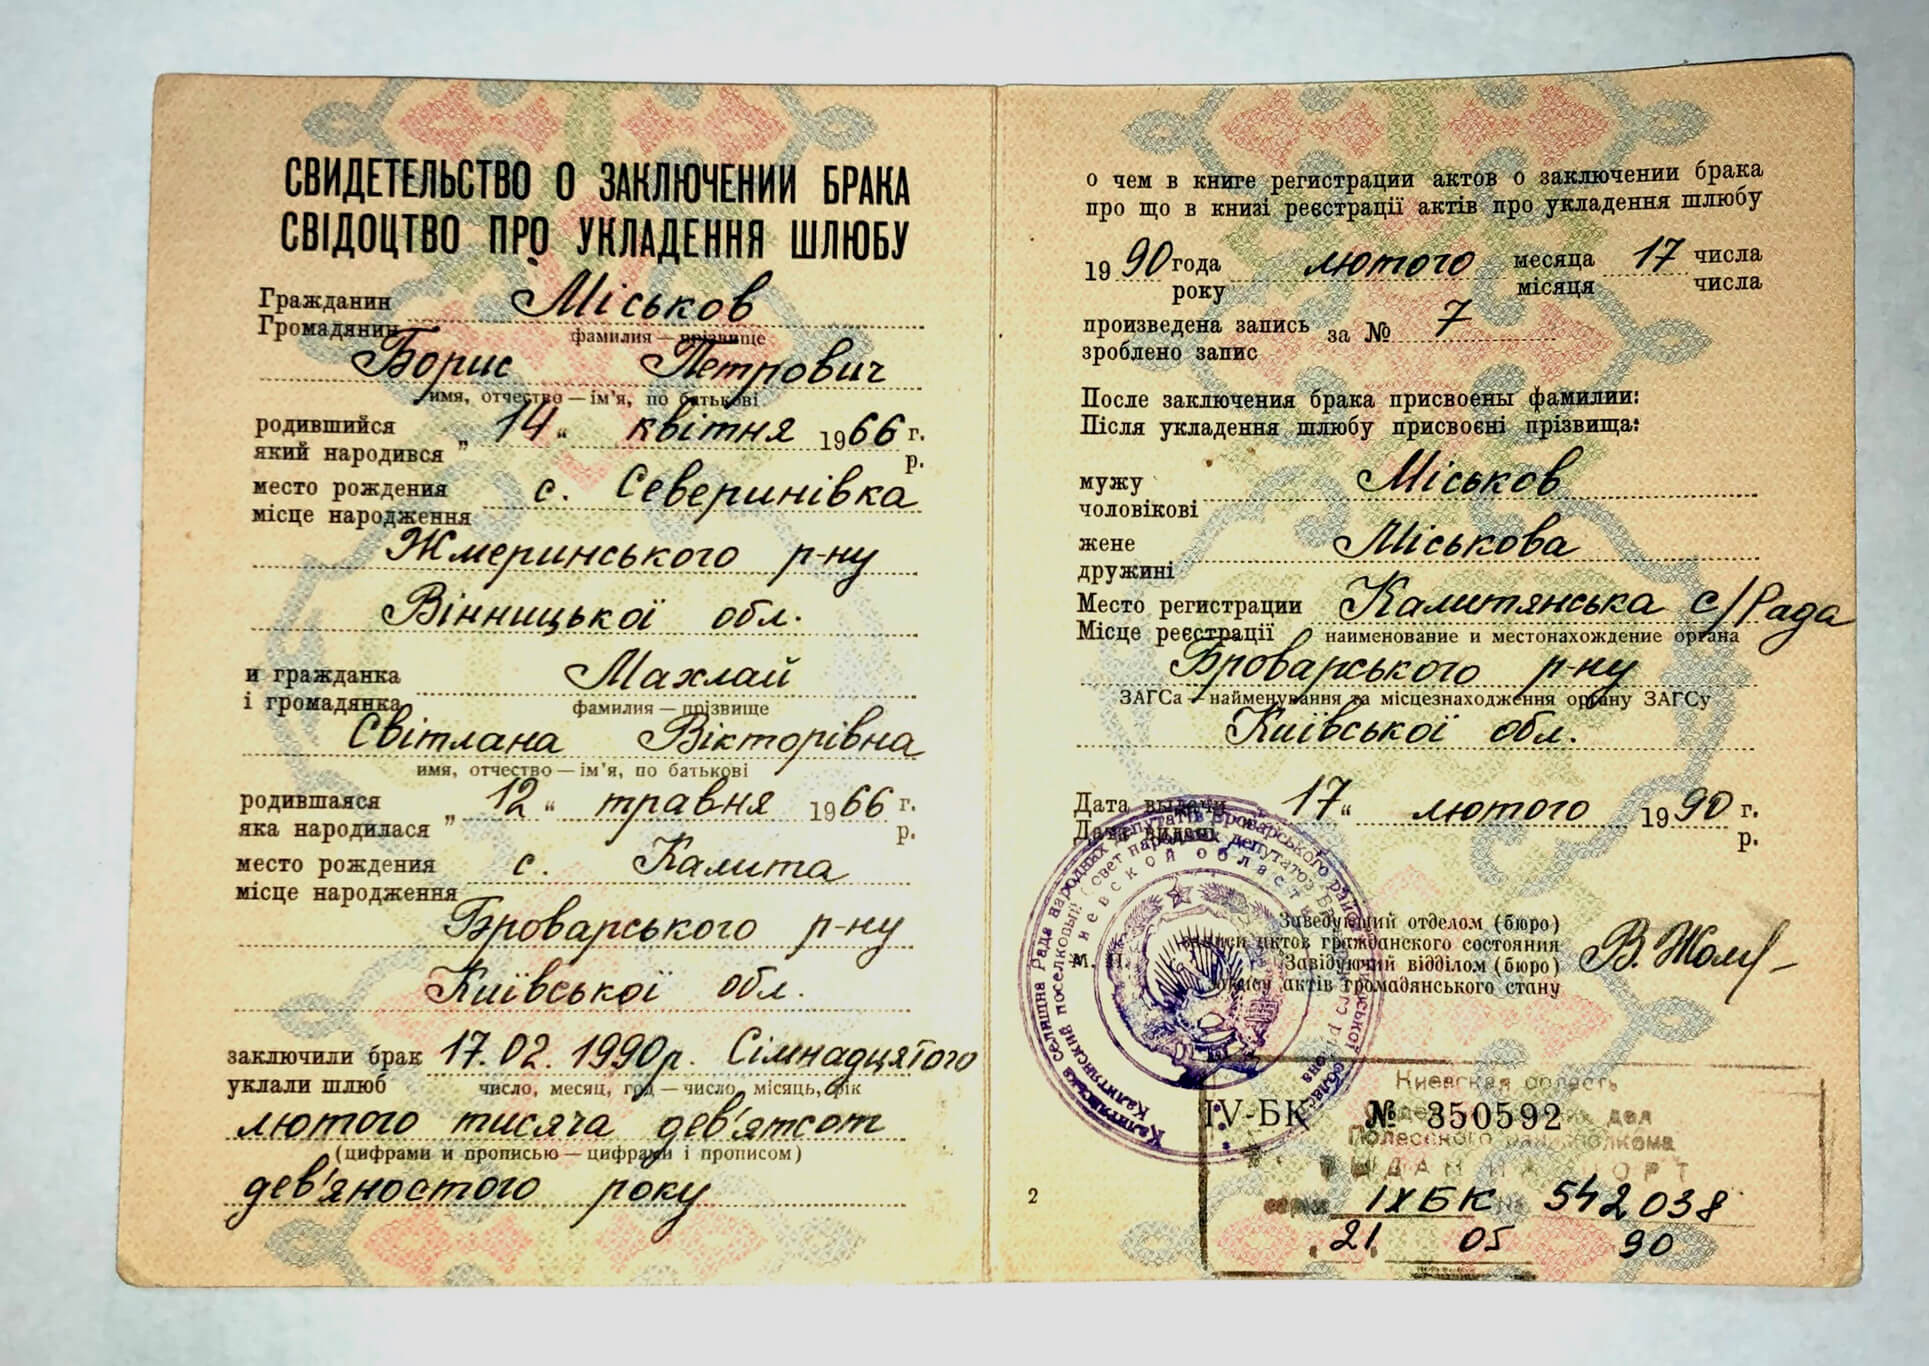 СВИДЕТЕЛЬСТВО О ЗАКЛЮЧЕНИИ БРАКА
СВІДОЦТВО ПРО УКЛАДЕННЯ ШЛЮБУ
Гражданин
Громадянин Міськов
фамилия — прізвище
Борис Петрович
имя, отчество — ім'я, по батькові
родившийся
який народився „ 14 “ квітня 1966 г.
р.
место рождения
місце народження с. Северинівка
Жмеринського р-ну
Вінницької обл.
и гражданка
і громадянка Махлай
фамилия — прізвище
Світлана Вікторівна
имя, отчество — ім'я, по батькові
родившаяся
яка народилася „ 12 “ травня 1966 г.
р.
место рождения
місце народження с. Калита
Броварського р-ну
Київської обл.
заключили брак 17.02.1990р. Сімнадцятого
уклали шлюб число, месяц, год — число, місяць, рік
лютого тисяча дев'ятсот
(цифрами и прописью — цифрами і прописом)
дев'яностого року
о чем в книге регистрации актов о заключении брака
про що в книзі реєстрації актів про укладення шлюбу
1990 года лютого месяца 17 числа
року місяця числа
произведена запись за № 7
зроблено запис
После заключения брака присвоены фамилии:
Після укладення шлюбу присвоєні прізвища:
мужу
чоловікові Міськов
жене
дружині Міськова
Место регистрации Калитянська с/Рада
Місце реєстрації наименование и местонахождение органа
Броварського р-ну
ЗАГСа — найменування та місцезнаходження органу ЗАГСу
Київської обл.
Дата выдачи 17 “ лютого 1990 г.
Дата видачі р.
Заведующий отделом (бюро)
записи актов гражданского состояния
Завідуючий відділом (бюро)
запису актів громадянського стану
М. П.
IV-БК № 350592
Киевская область
Полесского райисполкома
ВЫДАН ПАСПОРТ
серии IXБК № 542038
21 05 90
2